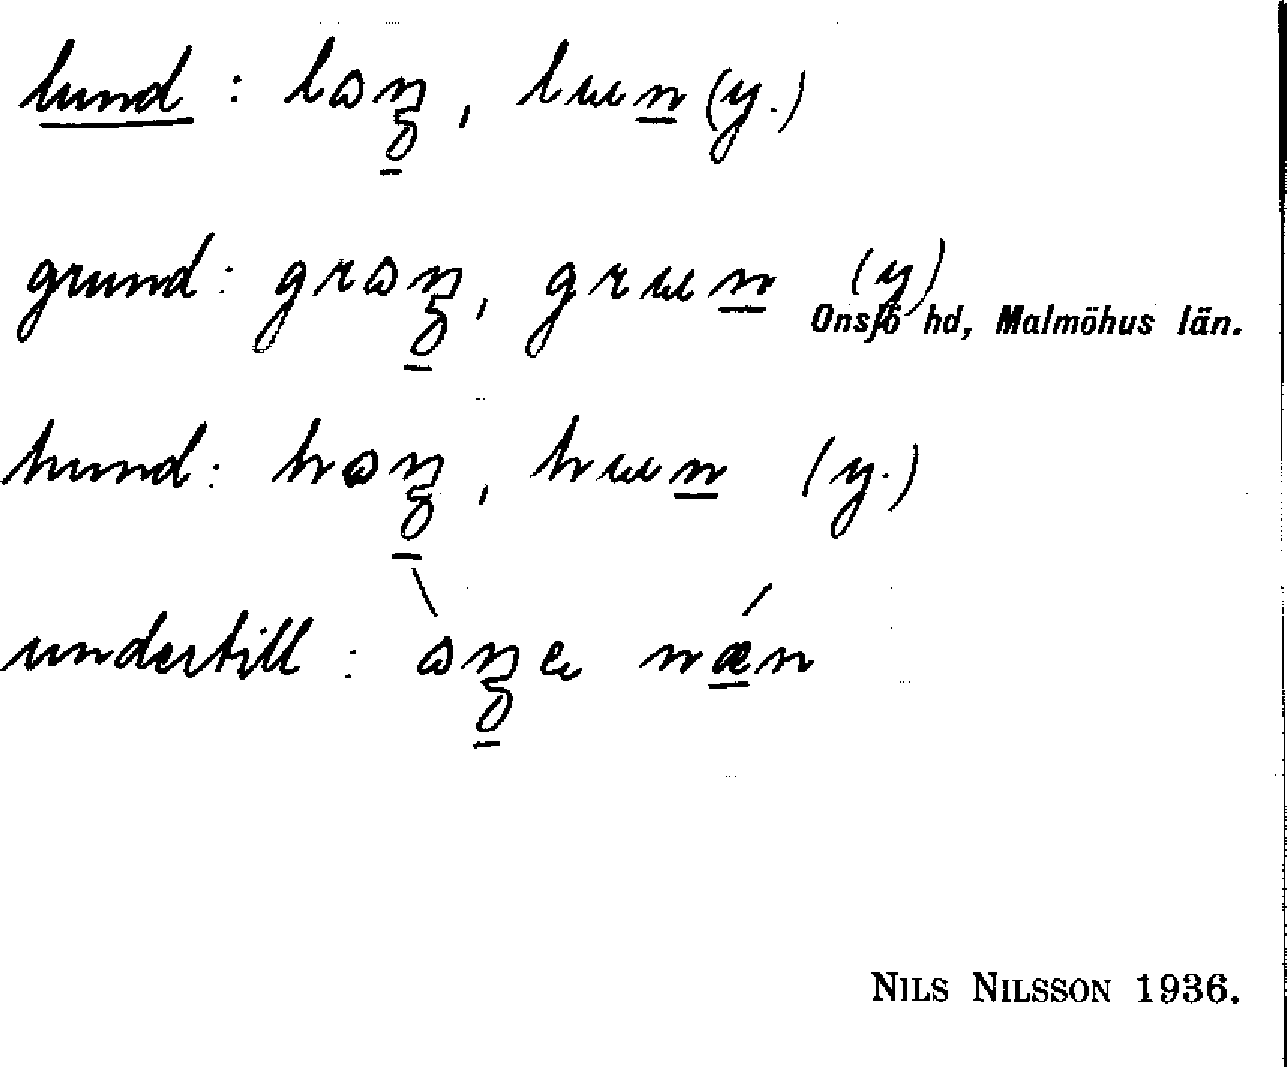 lund : lɷꞑ, lɯn (y.)
grund : grɷꞑ, grɯn (y)
Onsjö hd, Malmöhus län.
hund : hɷꞑ, hɯn (y.)
undertill : 
NILS NILSSON 1936.